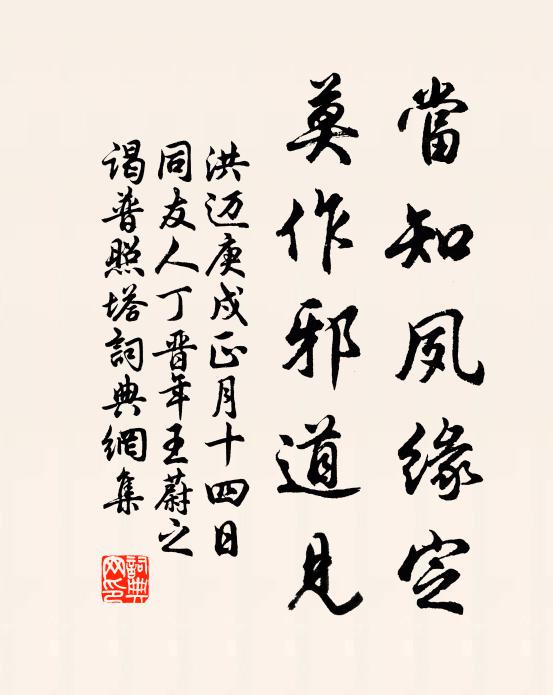 當知夙緣定
莫作邪道見
洪迈庚戌正月十四日
同友人丁晋年王蔚之
谒普照塔詞典網集
詞典
网印